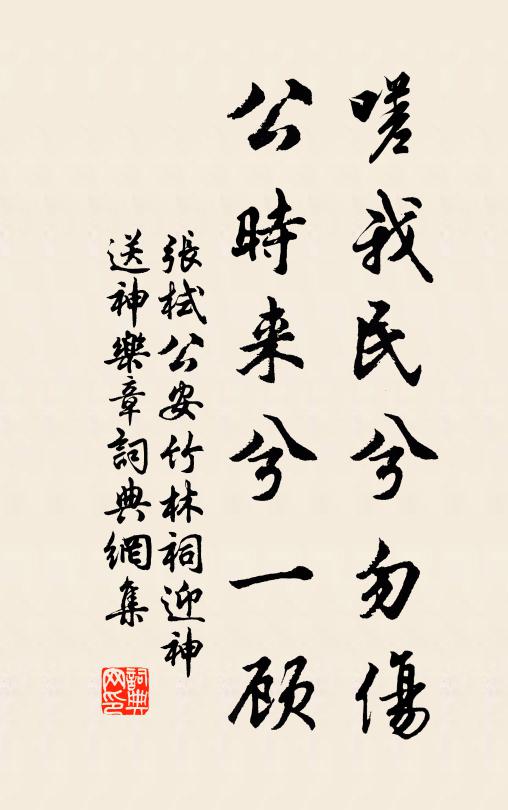 嗟我民兮勿傷
公時来兮一顾
張栻公安竹林祠迎神
送神樂章詞典網集
詞典网印